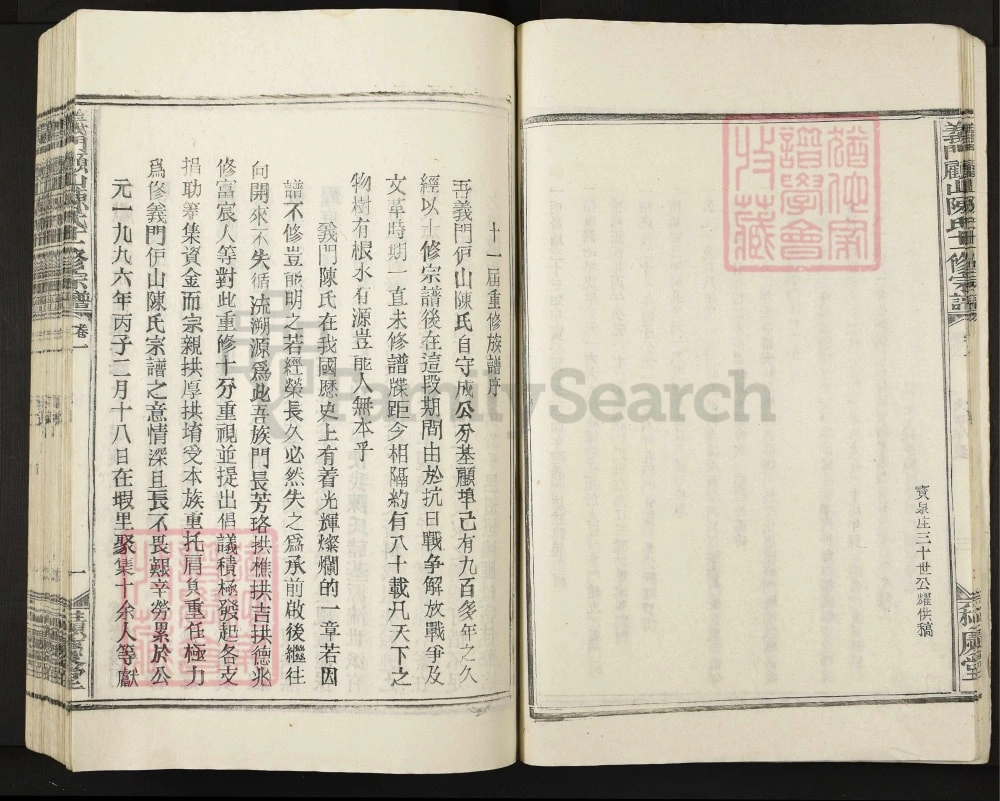 義門顧山陳氏十一修宗譜
寶泉生三十世公耀供稿
積慶堂
十一屆重修族譜序
吾義門庐山陳氏自守成公分基顧埠己有九百多年之久
經以十修宗譜後在這段期間由於抗日戰争解放戰爭及
文革時期一直未修譜牒距今相隔約有八十載凡天下之
物樹有根水有源豈能人無本乎
義門陳氏在我國歷史上有着光輝燦爛的一章若因
譜不修豈能明之若經榮長久必然失之爲承前啟後繼往
向開來不失循流溯源爲此吾族門長芳珞拱樵拱吉拱德兆
修富宸人等對此重修十分重視並提出倡議積極發起各支
捐助筹集資金而宗親拱厚拱堉受本族重托肩負重任極力
爲修義門庐山陳氏宗譜之意情深且長不畏艱辛勞累於公
元一九九六年丙子二月十八日在瑕里聚集十余人等獻
義門顧山陳氏十一修宗譜
卷一
一
積慶堂
FamilySearch